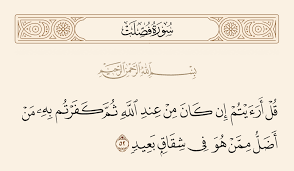 سُورَةُ فُصِّلَتْ
بِسْمِ اللَّهِ الرَّحْمَٰنِ الرَّحِيمِ
قُلْ أَرَءَيْتُمْ إِن كَانَ مِنْ عِندِ ٱللَّهِ ثُمَّ كَفَرْتُم بِهِۦ مَنْ
أَضَلُّ مِمَّنْ هُوَ فِى شِقَاقٍۭ بَعِيدٍ ٥٢